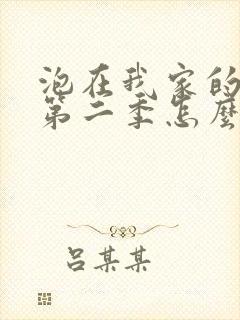 泡在我家的
第二季怎麼
吕某某